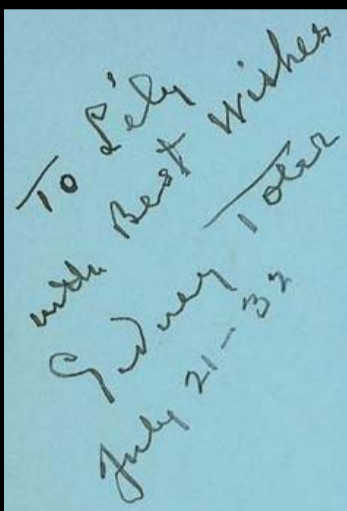 To Lily
with Best Wishes
Sidney Toler
July 21-32